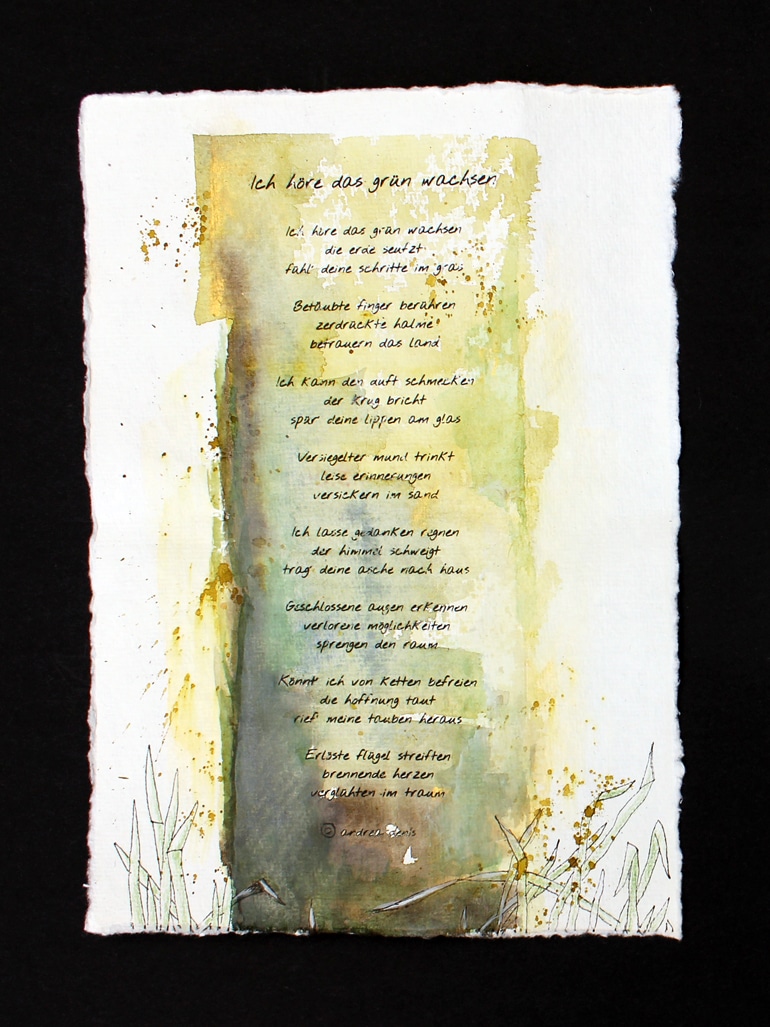 Ich höre das grün wachsen
Ich höre das grün wachsen
die erde seufzt
fühl' deine schritte im gras
Betäubte finger berühren
zerdrückte halme
betrauern das land
Ich kann den duft schmecken
der krug bricht
spür deine lippen am glas
Versiegelter mund trinkt
leise erinnerungen
versickern im sand
Ich lasse gedanken regnen
der himmel schweigt
trag' deine asche nach haus
Geschlossene augen erkennen
verlorene möglichkeiten
sprengen den raum
Könnt' ich von ketten befreien
die hoffnung taut
rief' meine tauben heraus
Erlöste flügel streiften
brennende herzen
verglühten im traum
© andrea denis